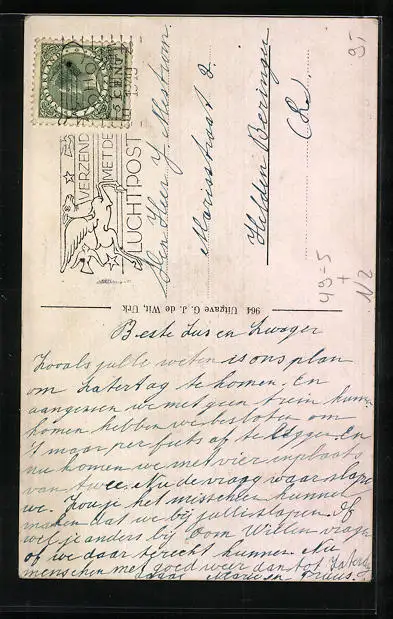 5 CENT
VERZENDT
MET DE
LUCHTPOST
Den Heer J. Mestrom
Mariastraat 2.
Helden Beringe
(L)
95
49-5
+
N2
964 Uitgave G. J. de Wit, Urk
Beste Zus en Zwager
Zooals jullie weten is ons plan
om Zaterdag te komen. En
aangezien we met geen trein kunnen
komen hebben we besloten om
't maar per fiets af te leggen. En
nu komen we met vier inplaats
van twee. Nu de vraag waar slapen
we. Zou je het misschien kunnen
maken dat we bij jullie slapen. Of
wel je anders bij Oom Willem vragen
of we daar terecht kunnen. Nu
menschen met goed weer dan tot Zaterdag
Marie en Truus.